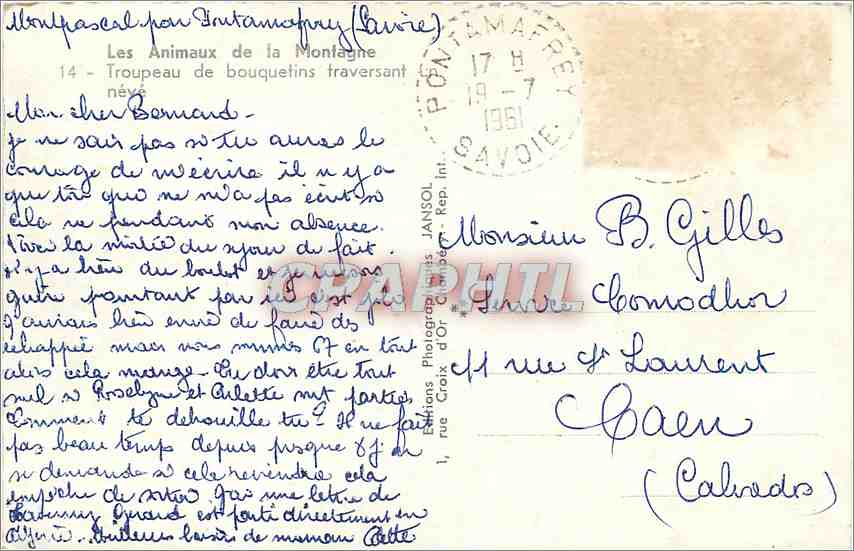 Montpascal par Pontamafrey (Savoie)
Les Animaux de la Montagne
14 - Troupeau de bouquetins traversant un
névé
Mon cher Bernard -
je ne sais pas si tu auras le
courage de m'écrire il n'y a
que toi qui ne m'a pas écrit si
cela ne pendant mon absence.
Voici la moitié du séjour de fait.
il y a bien du boulot et je
guère pourtant par ici c'est
J'aurais bien envie de faire des
échappée mais nous sommes 67 en tout
alors cela mange. Tu dois être tout
seul si Roselyne et Arlette sont parties
Comment te débrouille tu? Il ne fait
pas beau temps depuis presque 8 j on
se demande si cela reviendra cela
empêche de sortir. J'ai une lettre de
Gérard est parti directement en
Algérie. Meilleurs baisers de maman Odette
PONTAMAFREY
17 H
19 - 7
1961
SAVOIE
Editions Photographiques JANSOL
1, rue Croix d'Or Chambéry - Rep. int.
Monsieur B. Gilles
Service Comodhor
11 rue St Laurent
Caen
(Calvados)
CPAPHIL